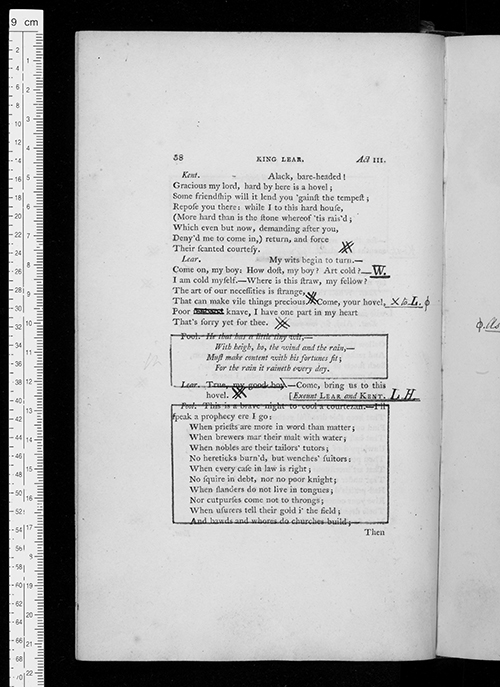 9 cm
58 KING LEAR. Act III.
Kent. Alack, bare-headed!
Gracious my lord, hard by here is a hovel;
Some friendſhip will it lend you 'gainſt the tempeſt;
Repoſe you there: while I to this hard houſe,
(More hard than is the ſtone whereof 'tis rais'd;
Which even but now, demanding after you,
Deny'd me to come in,) return, and force
Their ſcanted courteſy.
Lear. My wits begin to turn.—
Come on, my boy: How doſt, my boy? Art cold?— W.
I am cold myſelf.—Where is this ſtraw, my fellow?
The art of our neceſſities is ſtrange,
That can make vile things precious. Come, your hovel, X to L. ϕ
Poor knave, I have one part in my heart
That's ſorry yet for thee.
Fool. He that has a little tiny wit,—
With heigh, ho, the wind and the rain,—
Muſt make content with his fortunes fit;
For the rain it raineth every day.
Lear. True, my good boy.—Come, bring us to this
hovel. [Exeunt LEAR and KENT. L. H.
Fool. This is a brave night to cool a courtezan.—I'll
ſpeak a prophecy ere I go:
When prieſts are more in word than matter;
When brewers mar their malt with water;
When nobles are their tailors' tutors;
No hereticks burn'd, but wenches' ſuitors;
When every caſe in law is right;
No ſquire in debt, nor no poor knight;
When ſlanders do not live in tongues;
Nor cutpurſes come not to throngs;
When uſurers tell their gold i' the field;
And bawds and whores do churches build;—
Then